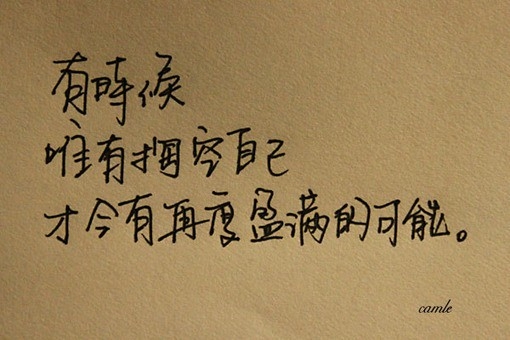 有時候
唯有掏空自己
才会有再度盈满的可能。
camle